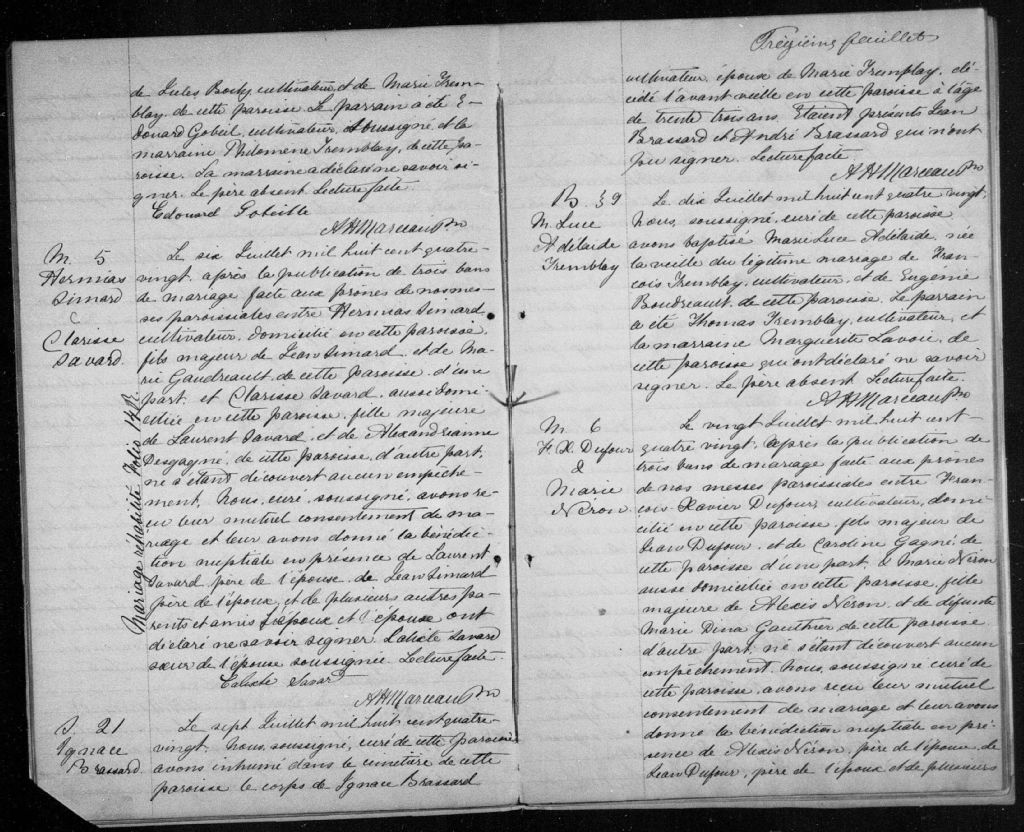 de Jules Boily, cultivateur, et de Marie Trem-
blay, de cette paroisse. Le parrain a été E-
douard Gobeil, cultivateur, soussigné, et la
marraine Philomène Tremblay, de cette pa-
roisse. La marraine a déclaré ne savoir si-
gner. Le père absent. Lecture faite.
Edouard Gobeille
AHMarceau Ptre
M. 5
Hermias
Simard
&
Clarisse
Savard.
Mariage réhabilité Folio 14R.
Le six Juillet mil huit cent quatre-
vingt, après la publication de trois bans
de mariage faite aux prônes de nos mes-
ses paroissiales entre Hermias Simard
cultivateur, domicilié en cette paroisse,
fils majeur de Jean Simard et de Ma-
rie Gaudreault, de cette paroisse, d'une
part, et Clarisse Savard, aussi domi-
ciliée en cette paroisse, fille majeure
de Laurent Savard, et de Alexandrianne
Desgagné, de cette paroisse, d'autre part,
ne s'étant découvert aucun empêche-
ment, Nous, curé, soussigné, avons re-
çu leur mutuel consentement de ma-
riage et leur avons donné la bénédic-
tion nuptiale en présence de Laurent
Savard, père de l'épouse, de Jean Simard
père de l'époux, et de plusieurs autres pa-
rents et amis. L'époux et l'épouse ont
déclaré ne savoir signer. Calixte Savard
sœur de l'épouse soussignée. Lecture faite.
Calixte Savard
AHMarceau Ptre
S. 21
Ignace
Brassard
Le sept Juillet mil huit cent quatre-
vingt, Nous, soussigné, curé de cette paroisse
avons inhumé dans le cimetière de cette
paroisse le corps de Ignace Brassard
Trézième feuillet
cultivateur, époux de Marie Tremblay, dé-
cédé l'avant veille en cette paroisse à l'âge
de trente trois ans. Etaient présents Jean
Brassard et André Brassard qui n'ont
pu signer. Lecture faite.
AHMarceau Ptre
B. 39
M. Luce
Adélaide
Tremblay
Le dix Juillet mil huit cent quatre vingt,
Nous, soussigné, curé de cette paroisse
avons baptisé Marie Luce Adélaide, née
la veille du légitime mariage de Fran-
çois Tremblay, cultivateur, et de Eugénie
Boudreault, de cette paroisse. Le parrain
a été Thomas Tremblay, cultivateur, et
la marraine Marguerite Lavoie, de
cette paroisse qui ont déclaré ne savoir
signer. Le père absent. Lecture faite.
AHMarceau Ptre
M. 6
F. X. Dufour
&
Marie
Néron.
Le vingt Juillet mil huit cent
quatre vingt, après la publication de
trois bans de mariage faite aux prônes
de nos messes paroissiales entre Fran-
çois-Xavier Dufour, cultivateur, domi-
cilié en cette paroisse, fils majeur de
Jean Dufour, et de Caroline Gagné, de
cette paroisse d'une part, & Marie Néron
aussi domiciliée en cette paroisse, fille
majeure de Alexis Néron, et de défunte
Marie Dina Gauthier de cette paroisse
d'autre part, ne s'étant découvert aucun
empêchement, Nous, soussigné curé de
cette paroisse, avons reçu leur mutuel
consentement de mariage et leur avons
donné la bénédiction nuptiale en pré-
sence de Alexis Néron, père de l'épouse, de
Jean Dufour, père de l'époux et de plusieurs